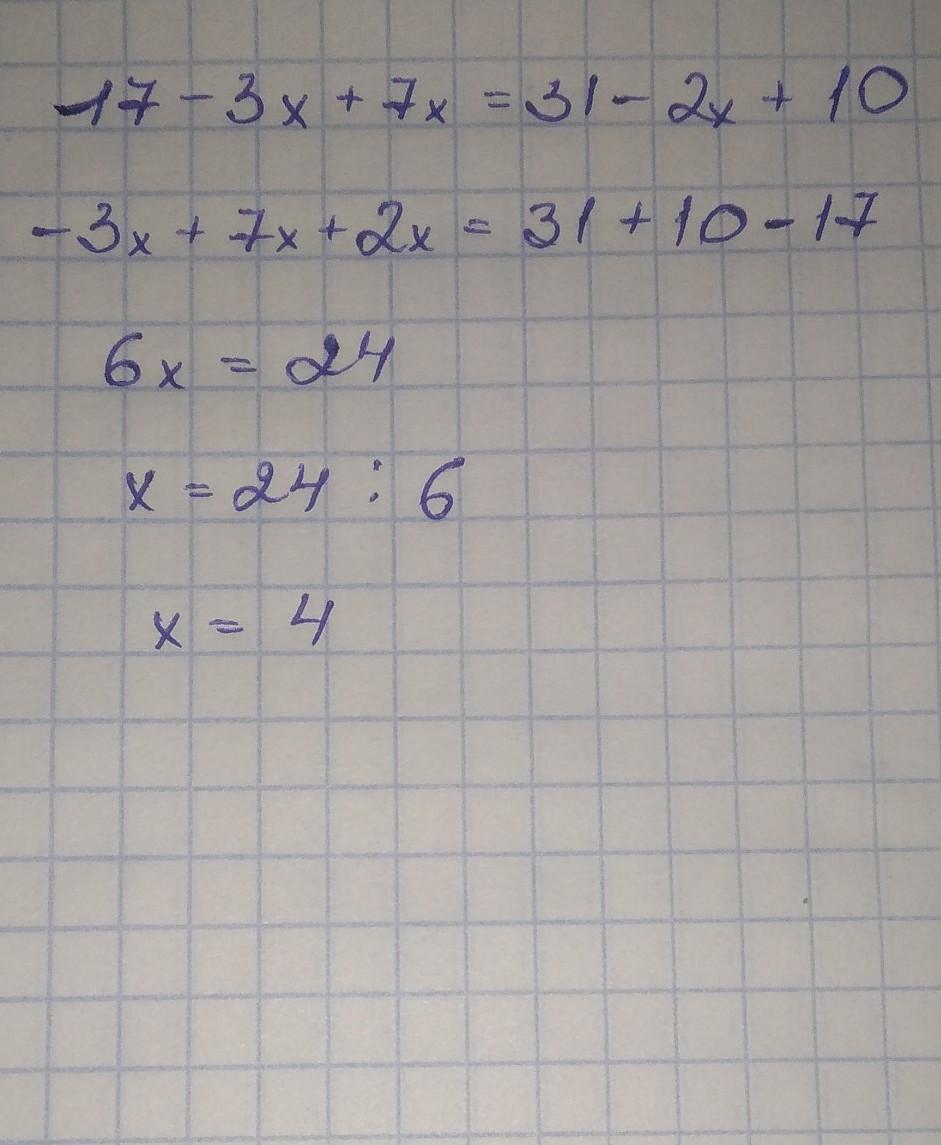 -17 - 3x + 7x = 31 - 2x + 10
-3x + 7x + 2x = 31 + 10 - 17
6x = 24
x = 24 : 6
x = 4